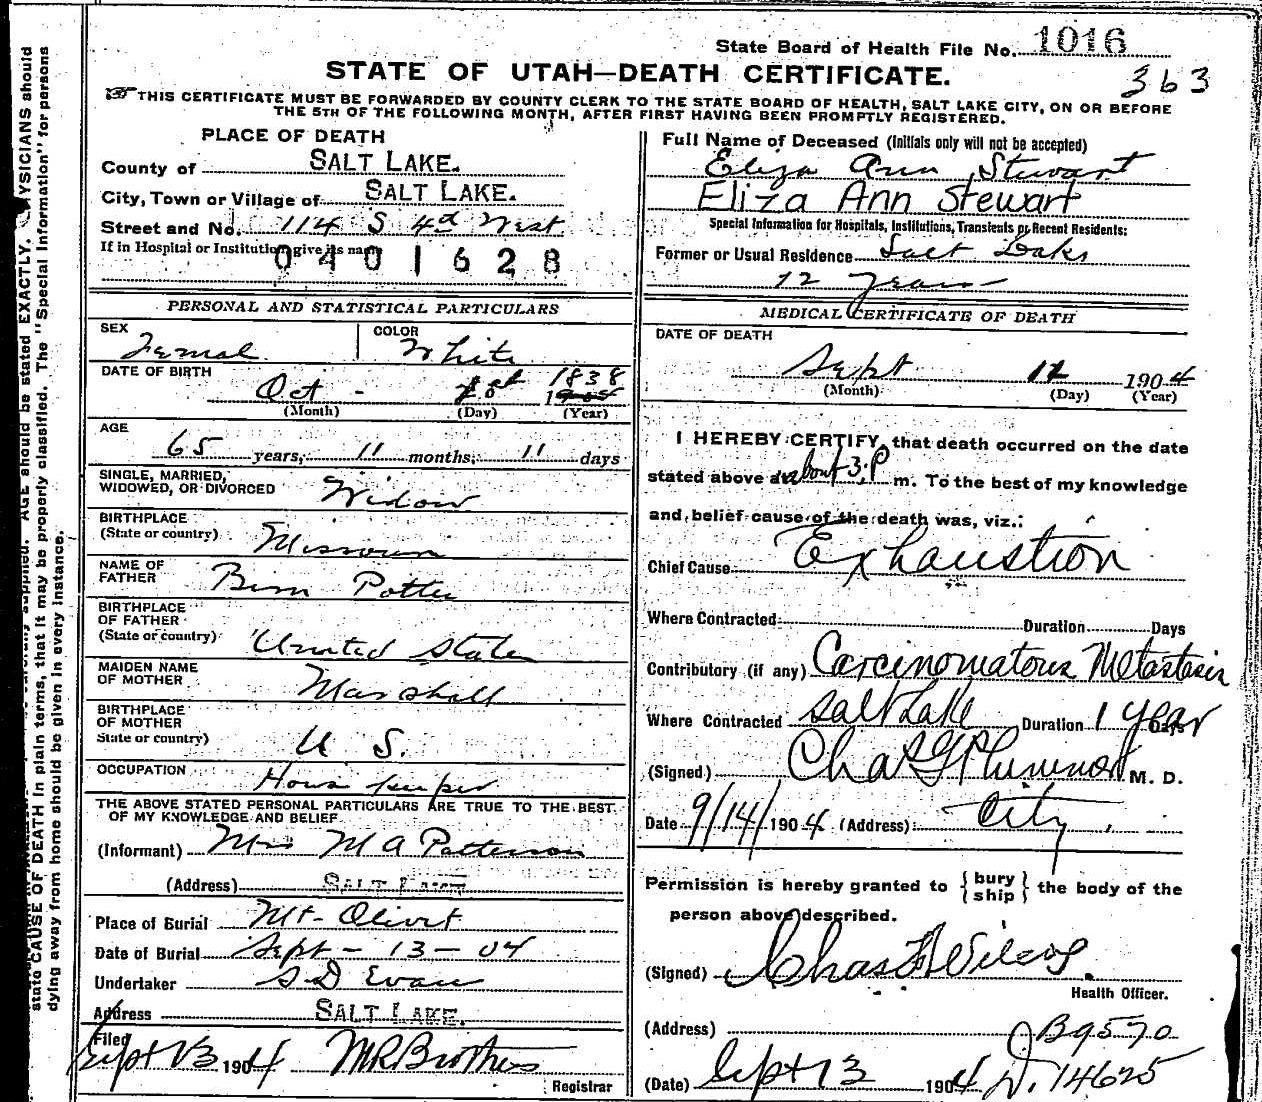 State Board of Health File No. 1016
STATE OF UTAH—DEATH CERTIFICATE.
363
THIS CERTIFICATE MUST BE FORWARDED BY COUNTY CLERK TO THE STATE BOARD OF HEALTH, SALT LAKE CITY, ON OR BEFORE
THE 5TH OF THE FOLLOWING MONTH, AFTER FIRST HAVING BEEN PROMPTLY REGISTERED.
PLACE OF DEATH
County of SALT LAKE.
City, Town or Village of SALT LAKE.
Street and No. 114 S 4th West
If in Hospital or Institution give its name
0401628
PERSONAL AND STATISTICAL PARTICULARS
SEX Femal COLOR White
DATE OF BIRTH Oct - 1838
(Month) (Day) (Year)
AGE
65 years, 11 months, 11 days
SINGLE, MARRIED,
WIDOWED, OR DIVORCED Widow
BIRTHPLACE
(State or country) Missouri
NAME OF
FATHER Potter
BIRTHPLACE
OF FATHER
(State or country) United States
MAIDEN NAME
OF MOTHER Marshall
BIRTHPLACE
OF MOTHER
State or country) U S.
OCCUPATION House keeper
THE ABOVE STATED PERSONAL PARTICULARS ARE TRUE TO THE BEST
OF MY KNOWLEDGE AND BELIEF
(Informant) Mrs M A Patterson
(Address) SALT LAKE
Place of Burial Mt Olivet
Date of Burial Sept - 13 - 04
Undertaker S D Evans
Address SALT LAKE.
Filed Sept 13 1904 M R Brothers
Registrar
Full Name of Deceased (Initials only will not be accepted)
Eliza Ann Stewart
Eliza Ann Stewart
Special Information for Hospitals, Institutions, Transients or Recent Residents:
Former or Usual Residence Salt Lake
12 Years
MEDICAL CERTIFICATE OF DEATH
DATE OF DEATH
Sept 12 1904
(Month) (Day) (Year)
I HEREBY CERTIFY, that death occurred on the date
stated above at about 3 P m. To the best of my knowledge
and belief cause of the death was, viz.:
Chief Cause Exhaustion
Where Contracted Duration Days
Contributory (if any) Carcinomatous Metastasis
Where Contracted Salt Lake Duration 1 year Days
(Signed) Chas G Plummer M. D.
Date 9/14/1904 (Address) City
Permission is hereby granted to { bury ship } the body of the
person above described.
(Signed) Chas F Wilcox.
Health Officer.
(Address) B9570
(Date) Sept 13 1904 D. 14625
state CAUSE OF DEATH in plain terms, that it may be properly classified. The "Special Information" for persons
dying away from home should be given in every instance.